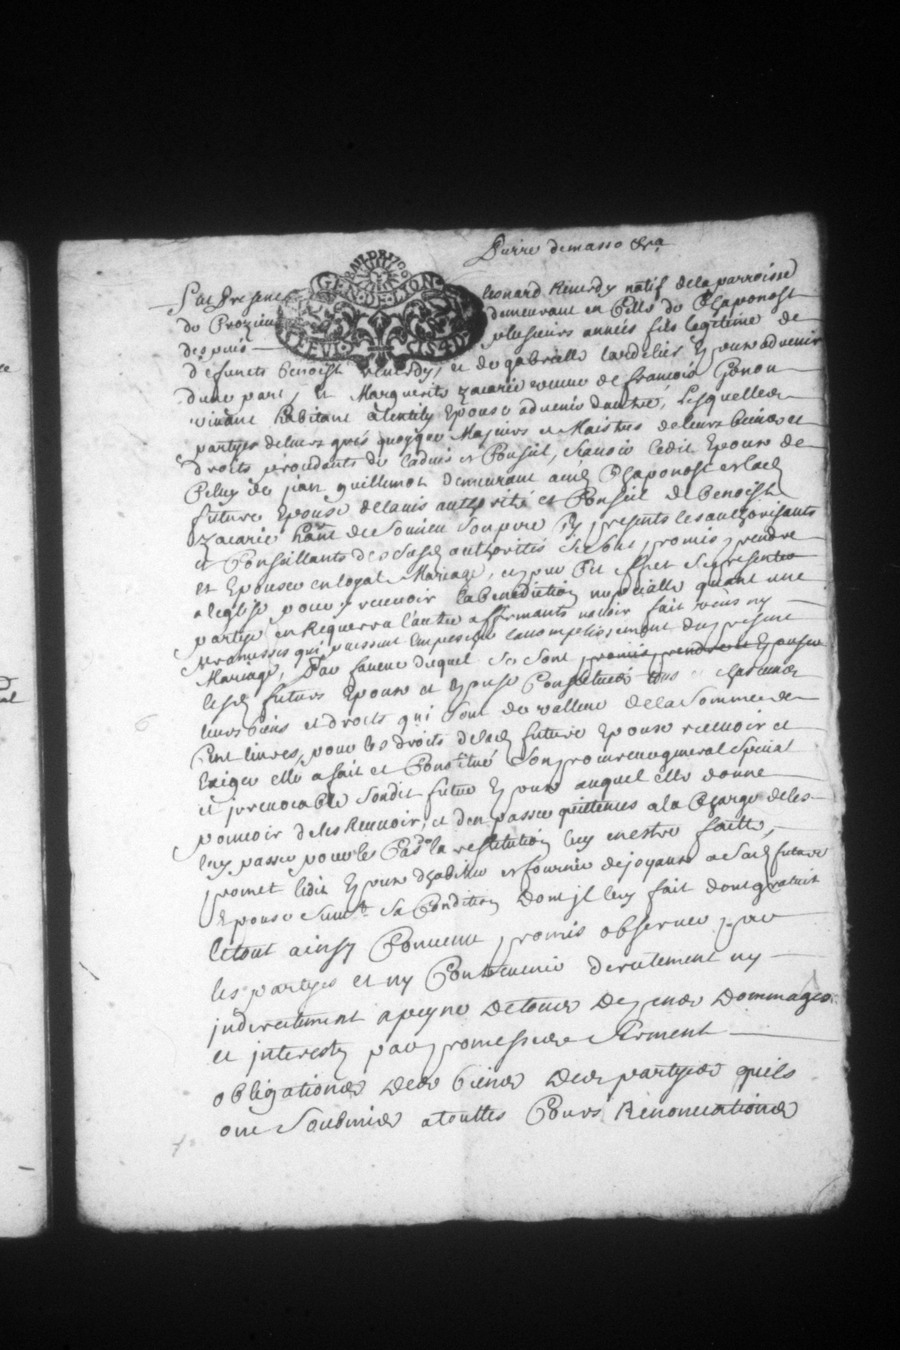 Pierre demasso &ra
BAVLDR 1700
GEN·DE·LION
Fut Present Leonard Reverdy natif dela parroisse
de Brozieu demeurant en Celle de Chaponost
despuis plusieurs années fils legitime de
défuncts benoist Reverdy, et de gabrielle lardelier Epoux advenir
dune part, Et Marguerite zacarie vevue de francois Genou
vivant habitant a lentily Epouse advenir dautre, Lesquelles
partyes deleurs grés quoyque Majeurs et Maistres de leurs biens et
droits procedants de ladvis et Conseil, scavoir ledit Epoux de
Celuy de jean guillemot demeurant aud Chaponost et lad
future Epouse delavis authorité et Conseil de benoist
zacarie habt de Soucieu Son pere Icy presents les authorisants
et Conseillants desdes authorités Se Sont promis prendre
et Epouser en loyal Mariage, et pour Cet effet Se presenter
a leglise pour y recevoir la benediction nuptialle quant une
partye en Requerra l'autre affirmants navoir fait vœus ny
promesses qui puissent empescher laccomplissement du present
Mariage, En faveur duquel Se Sont promis prendre et Epouser
lesd futurs Epoux et Epouse Constitués tous chascuns
leurs biens et droits qui Sont de valleur de la Somme de
Cent livres, pour les droits delad future Epouse recevoir et
Exiger elle a fait et Constitué Son procureur general Special
et irrevocable Sondit futur Epoux auquel elle donne
pouvoir deles Recevoir, et den passer quittances a la Charge deles
luy passer pour le Cas de la restitution luy en estre faitte,
promet ledit Epoux dhabiller et fournir de joyaux a Sad future
Epouse Suivt Sa Condition dont jl luy fait don gratuit
le tout ainsy Convenu promis observer par
les partyes et ny Contrevenir directement ny
indirectement a peyne de tous despens dommages
et interests par promesse et Serment
obligations des biens des partyes quils
ont Soubmis a touttes Cours Renonciations